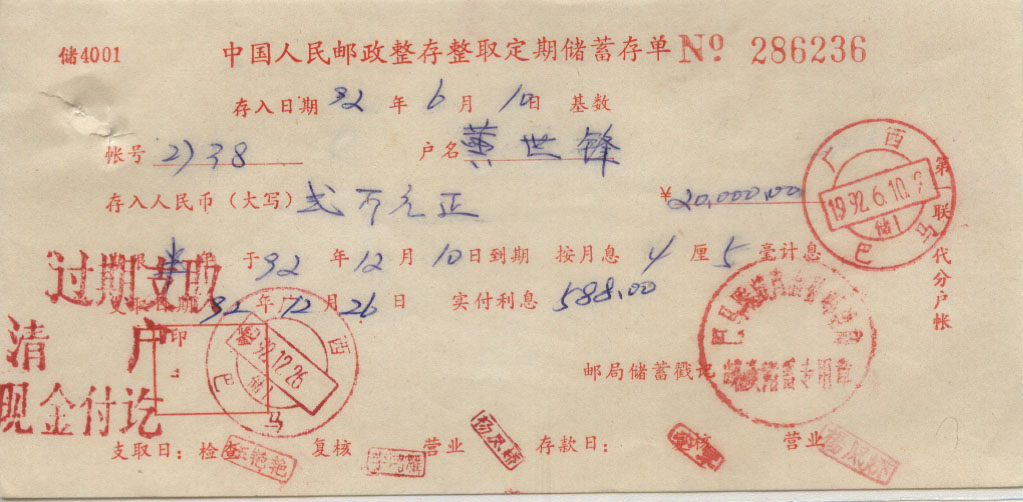 储4001 中国人民邮政整存整取定期储蓄存单 Nº 286236
存入日期 92 年 6 月 10日 基数
帐号 2138 户名 黄世锋
存入人民币（大写）弍万元正 ￥20,000.00
限 半 年 于 92 年 12 月 10日到期 按月息 4 厘 5 毫计息
过期支取
支取日期 92 年 12 月 26 日 实付利息 588.00
清户
印鉴
现金付讫
邮局储蓄戳记
支取日： 检查 复核 营业 存款日： 复核 营业
第一联代分户帐
广西
1992.6.10.
储1
巴马
广西
1992.12.26
储1
巴马